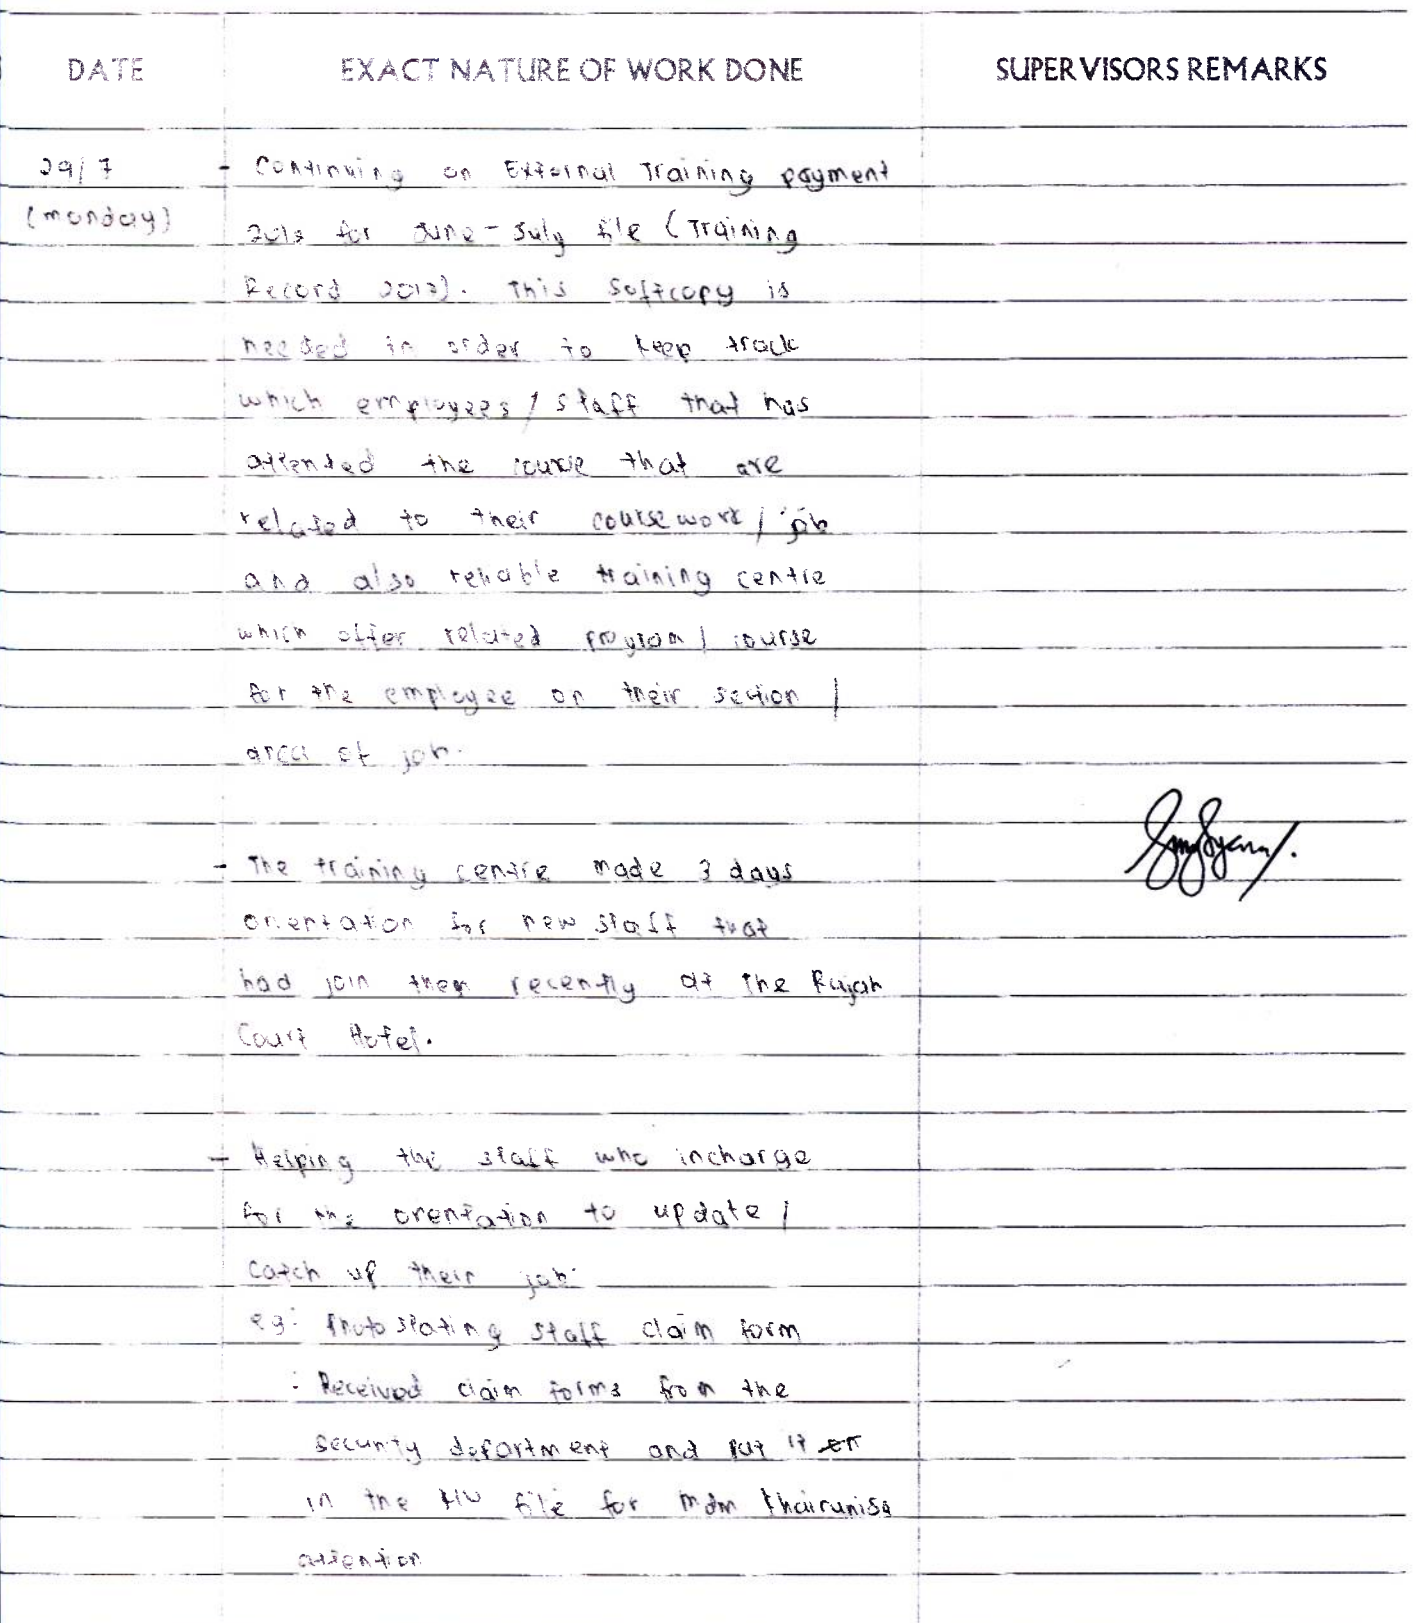 DATE EXACT NATURE OF WORK DONE SUPERVISORS REMARKS
29/7 - Continuing on External Training payment
(monday) 2013 for June - July file (Training
Record 2013). This softcopy is
needed in order to keep track
which employees / staff that has
attended the course that are
related to their coursework / job
and also reliable training centre
which offer related program / course
for the employee on their section /
area of job.
- The training centre made 3 days
orientation for new staff that
had join them recently at The Rajah
Court Hotel.
- Helping the staff who incharge
for the orentation to update /
catch up their job.
eg: Photostating staff claim form
: Received claim forms from the
security department and put it
in the file for Mdm Khairunisa
attention